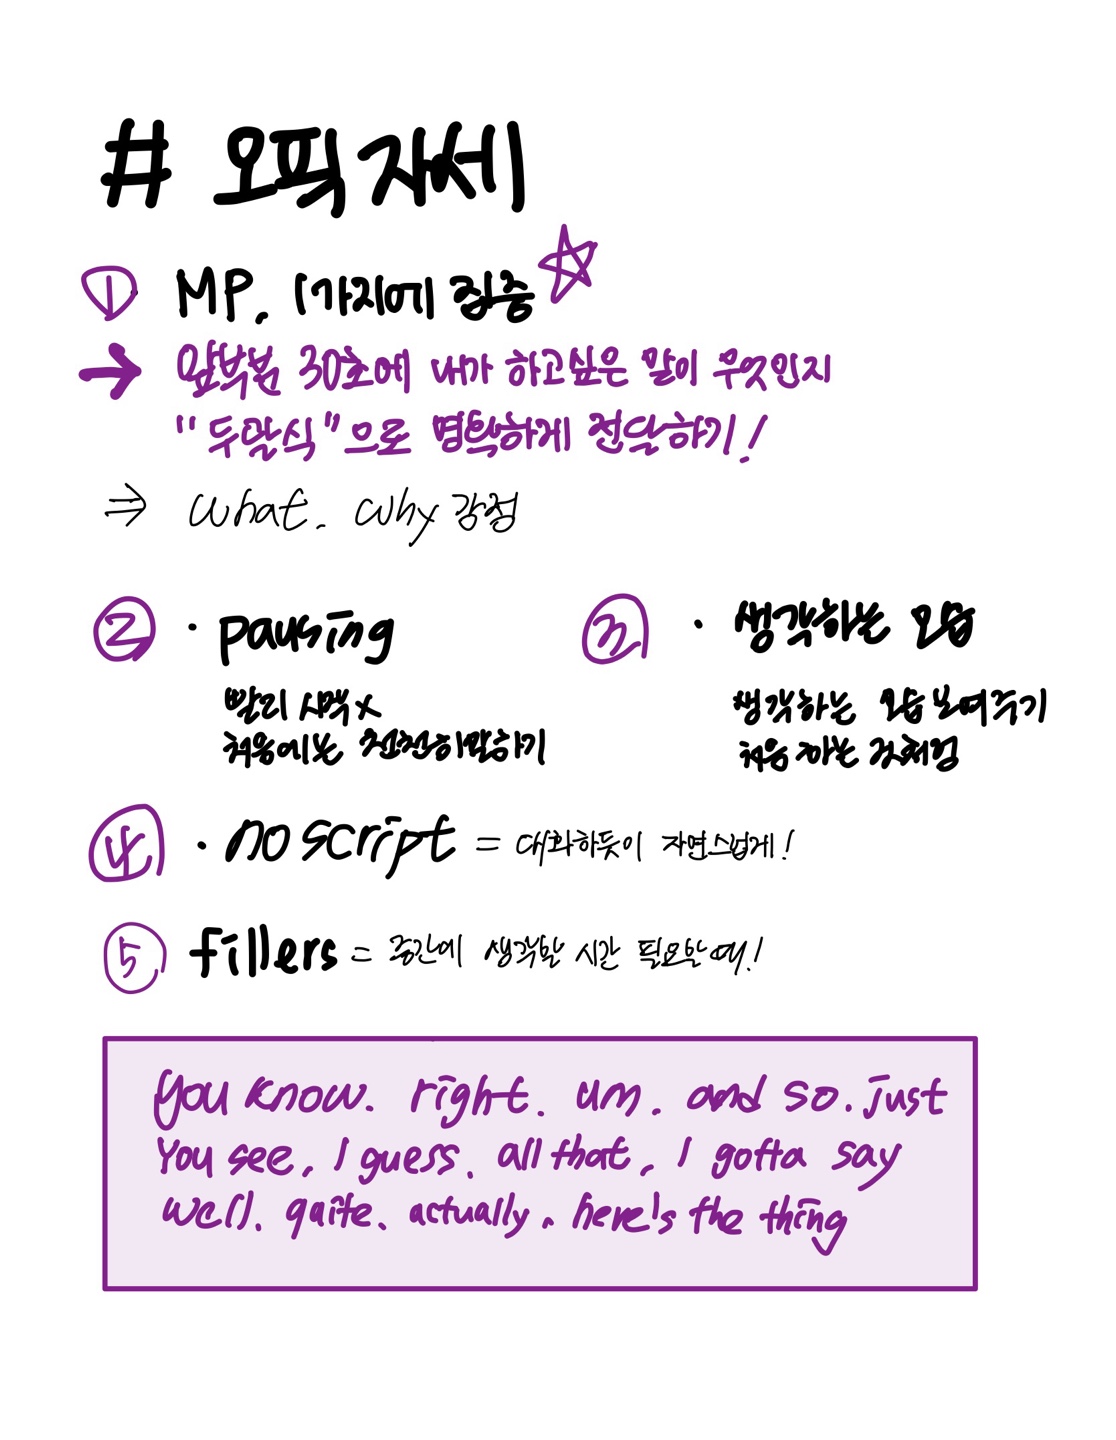 # 오픽 자세
① MP. 1가지에 집중
→ 앞부분 30초에 내가 하고싶은 말이 무엇인지
"두말식"으로 명확하게 전달하기!
⇒ what. why 감정
② · pausing
빨리 시작 x
처음에는 천천히말하기
③ · 생각하는 모습
생각하는 모습보여주기
처음 하는 것처럼
④ · no script = 대화하듯이 자연스럽게!
⑤ fillers = 중간에 생각할 시간 필요할때!
you know. right. um. and so. just
You see, I guess. all that, I gotta say
well. quite. actually. here's the thing